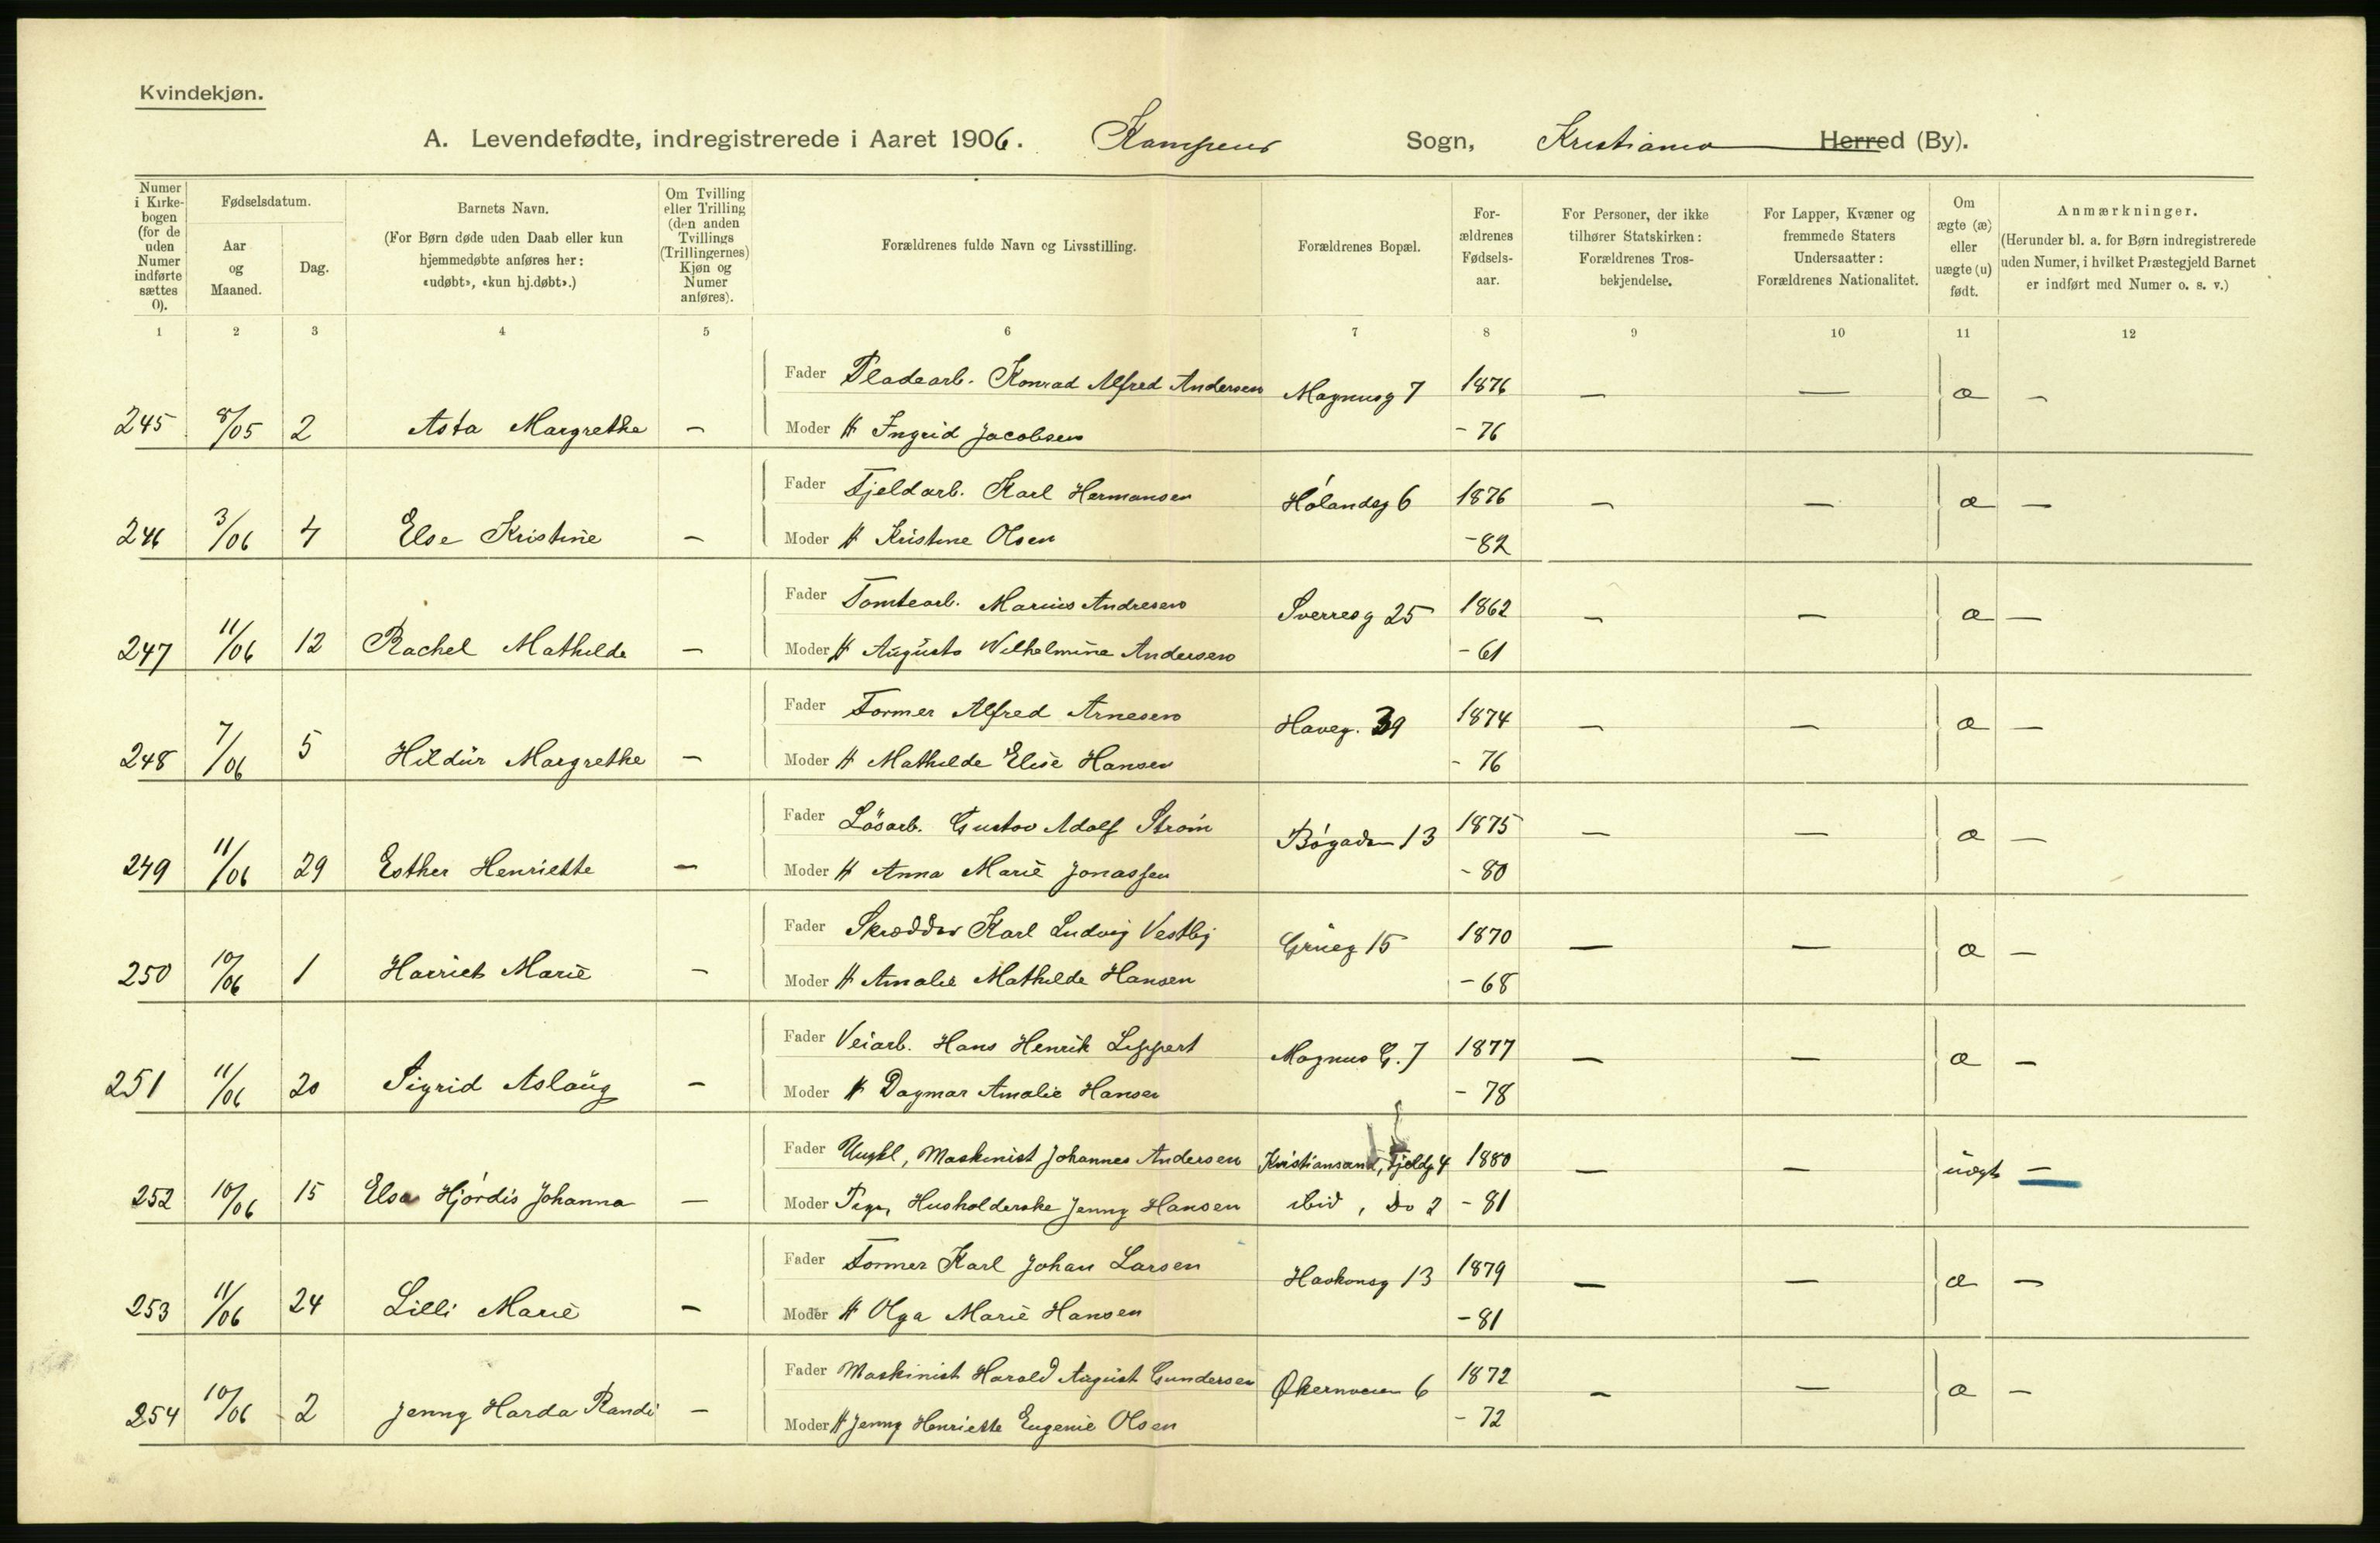 Kvindekjøn.
A. Levendefødte, indregistrerede i Aaret 1906. Kampens Sogn, Kristiania Herred (By).
Numer i Kirkebogen (for de uden Numer indførte sættes 0).
Fødselsdatum.
Aar og Maaned.
Dag.
Barnets Navn.
(For Børn døde uden Daab eller kun hjemmedøbte anføres her: «udøbt», «kun hj.døbt».)
Om Tvilling eller Trilling (den anden Tvillings (Trillingernes) Kjøn og Numer anføres).
Forældrenes fulde Navn og Livsstilling.
Forældrenes Bopæl.
For-ældrenes Fødsels-aar.
For Personer, der ikke tilhører Statskirken: Forældrenes Tros-bekjendelse.
For Lapper, Kvæner og fremmede Staters Undersaatter: Forældrenes Nationalitet.
Om ægte (æ) eller uægte (u) født.
Anmærkninger.
(Herunder bl. a. for Børn indregistrerede uden Numer, i hvilket Præstegjeld Barnet er indført med Numer o. s. v.)
1 2 3 4 5 6 7 8 9 10 11 12
Fader Pladearb. Konrad Alfred Andersen Magnusg 7 1876 — — æ —
245 8/05 2 Asta Margrethe — Moder H Ingrid Jacobsen - 76
Fader Fjeldarb. Karl Hermansen Hølandsg 6 1876 — — æ —
246 3/06 4 Else Kristine — Moder H Kristine Olsen - 82
Fader Tomtearb. Marius Andresen Sverresg 25 1862 — — æ —
247 11/06 12 Rachel Mathilde — Moder H Augusta Wilhelmine Andersen - 61
Fader Former Alfred Arnesen Haveg. 39 1874 — — æ —
248 7/06 5 Hildur Margrethe — Moder H Mathilde Elise Hansen - 76
Fader Løsarb. Gustav Adolf Strøm Bøgaden 13 1875 — — æ —
249 11/06 29 Esther Henriette — Moder H Anna Marie Jonassen - 80
Fader Skrædder Karl Ludvig Vestby Grüeg 15 1870 — — æ —
250 10/06 1 Harriet Marie — Moder H Amalie Mathilde Hansen - 68
Fader Veiarb. Hans Henrik Lippert Magnus G. 7 1877 — — æ —
251 11/06 20 Sigrid Aslaug — Moder H Dagmar Amalie Hansen - 78
Fader Ungkl, Maskinist Johannes Andersen Kristiansand, Fjeldg 4 1880 — — uægte —
252 10/06 15 Elsa Hjørdis Johanna — Moder Pige, Husholderske Jenny Hansen ibid, do 2 - 81
Fader Former Karl Johan Larsen Haakonsg 13 1879 — — æ —
253 11/06 24 Lilli Marie — Moder H Olga Marie Hansen - 81
Fader Maskinist Harald August Gundersen Økernveien 6 1872 — — æ —
254 10/06 2 Jenny Harda Randi — Moder H Jenny Henriette Eugenie Olsen - 72